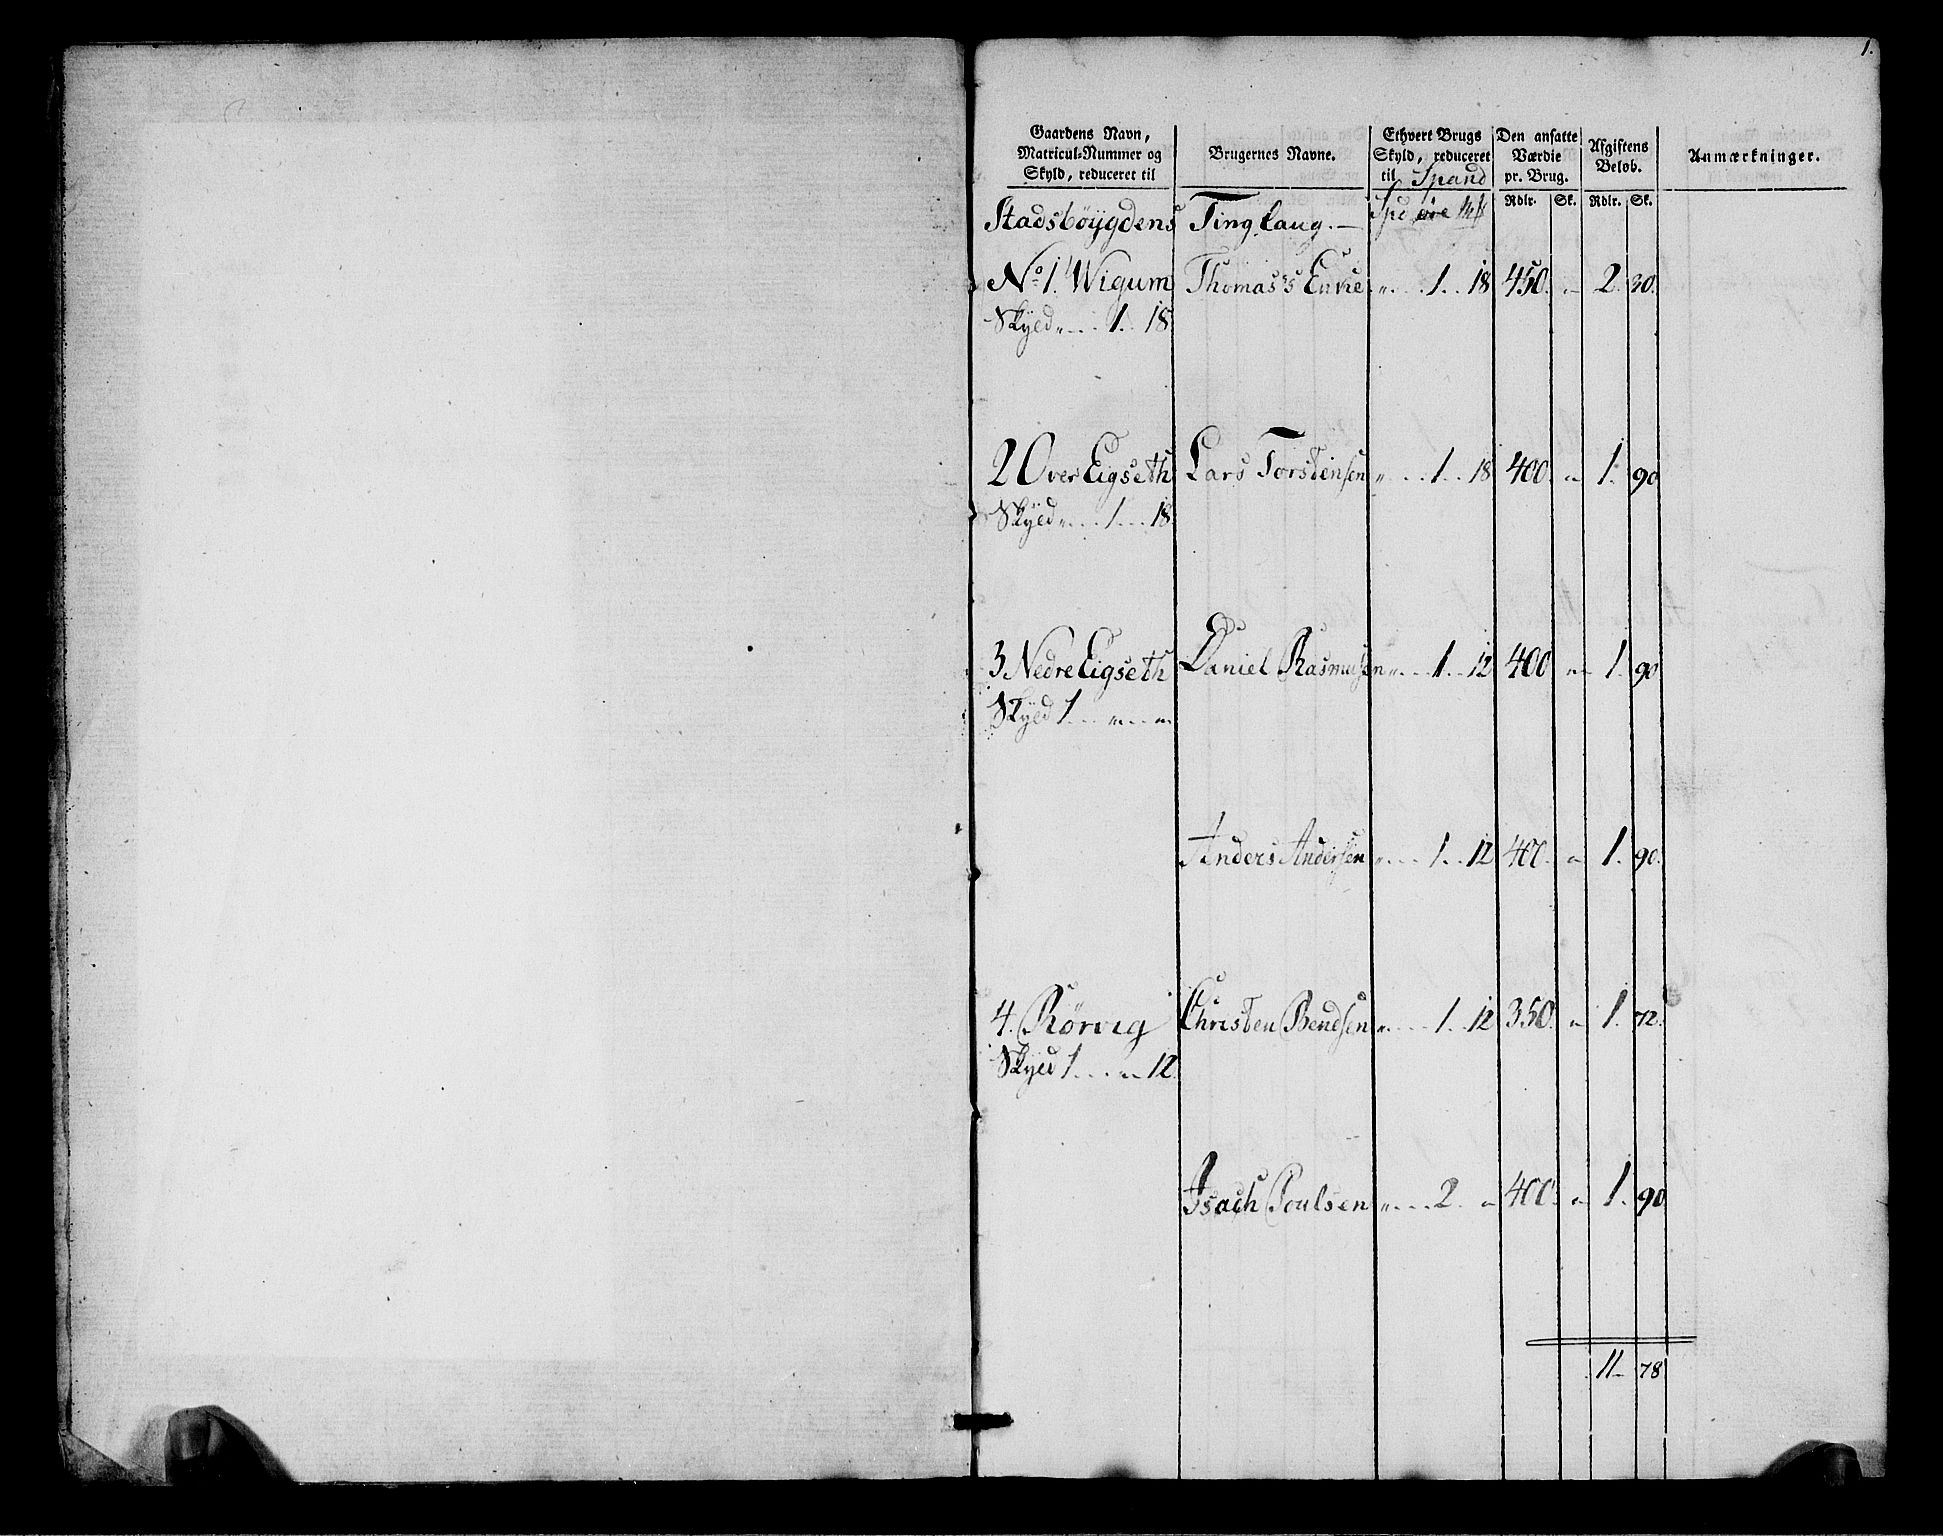 1.
Gaardens Navn, Matricul-Nummer og Skyld, reduceret til
Brugernes Navne.
Ethvert Brugs Skyld, reduceret til Spand
Den ansatte Værdie pr. Brug.
Afgiftens Beløb.
Anmærkninger.
Rdlr. Sk. Rdlr. Sk.
Stadsböÿgdens Tinglaug. — Spd öre
No. 1. Wigum Thomas's Enke „ 1 18 450. „ 2. 30.
Skyld „ 1. 18
2 Over Eigseth Lars Torstensen „ 1 18 400. „ 1. 90
Skyld „ 1 18.
3 Nedre Eigseth Daniel Rasmusen „ 1 12 400 „ 1. 90
Skyld 1 „ „
Anders Andersen „ 1 12 400. „ 1. 90.
4. Rörvig Christen Bendsen „ 1 12 350. „ 1. 72.
Skyld 1 „ 12.
Isach Poulsen „ 2. „ 400. „ 1. 90
11 78